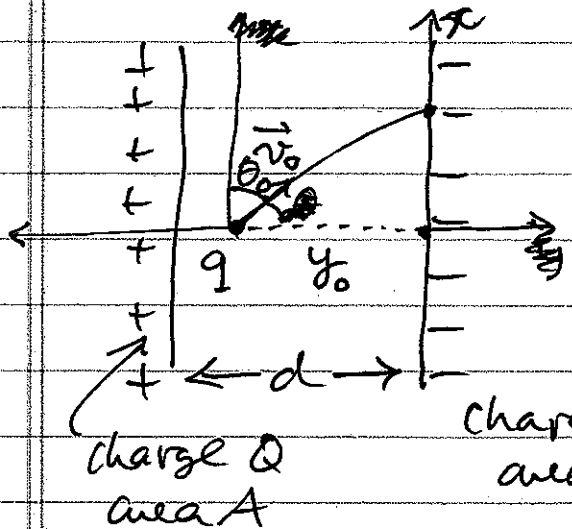 x
+ −
+ −
v₀
+ θ₀ −
+ −
q y₀
+ −
+ −
+ ← d → −
charge Q
area A
char
area